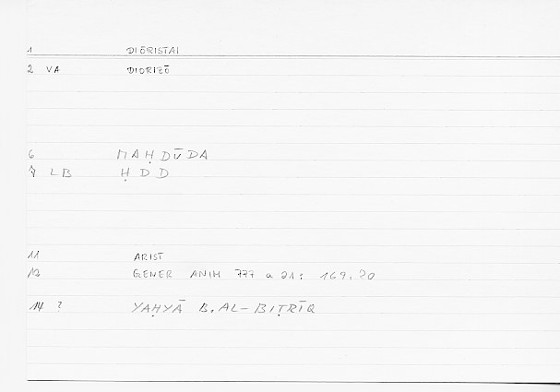 1 DIŌRISTAI
2 VA DIORIZŌ
6 MAḤDŪDA
LB ḤDD
11 ARIST
GENER ANIM 777 a 21: 169.20
14 ? YAḤYĀ B. AL-BIṬRĪQ